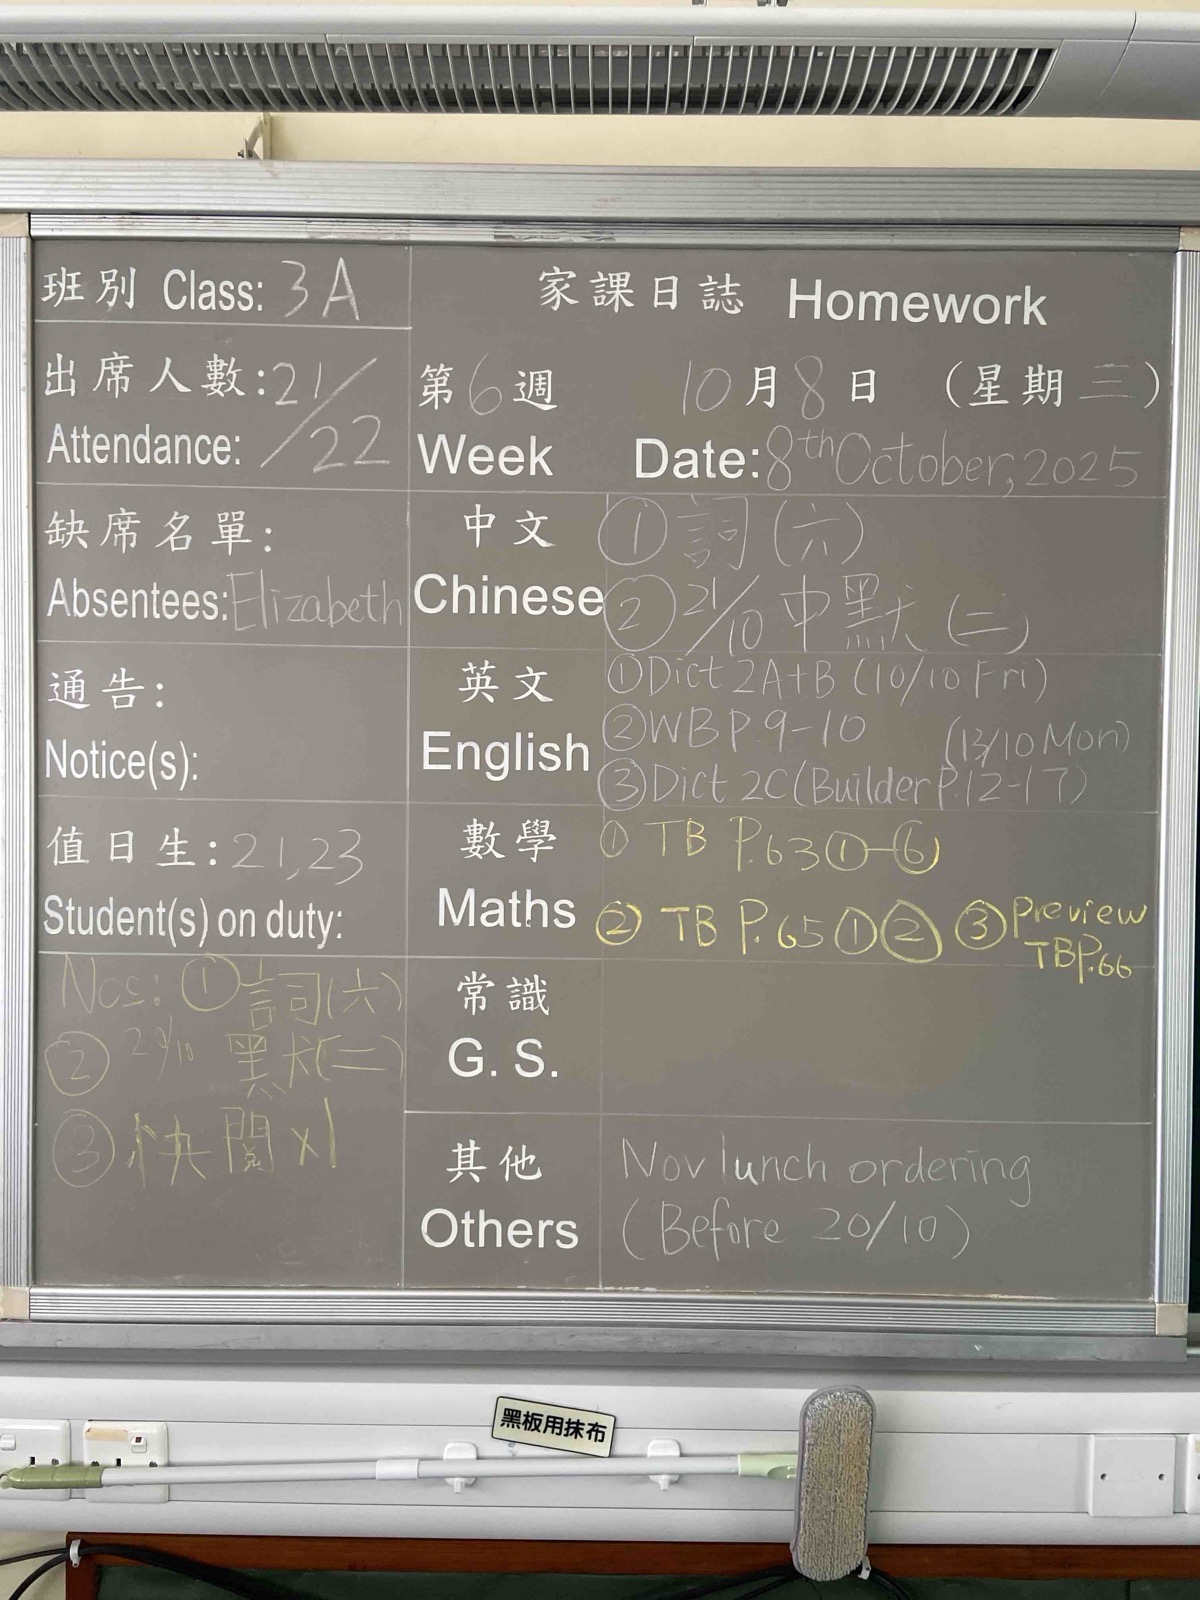 班別 Class: 3A
出席人數: 21/22
Attendance:
缺席名單:
Absentees: Elizabeth
通告:
Notice(s):
值日生: 21,23
Student(s) on duty:
Ncs: ① 詞(六)
② 21/10 默(二)
③ 快閱 x1
家課日誌 Homework
第6週 10月8日 (星期三)
Week Date: 8th October, 2025
中文 ① 詞(六)
Chinese ② 21/10 中默(二)
英文 ① Dict 2A+B (10/10 Fri)
② WB P.9-10 (13/10 Mon)
English ③ Dict 2C (Builder P.12-17)
數學 ① TB P.63 ①-⑥
Maths ② TB P.65 ① ② ③ Preview
TB P.66
常識
G. S.
其他 Nov lunch ordering
Others (Before 20/10)
黑板用抹布